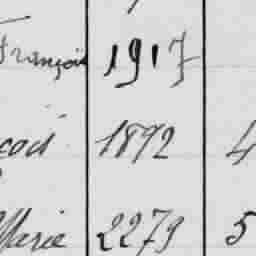 François 1917
çois 1892 4
Marie 2279 5